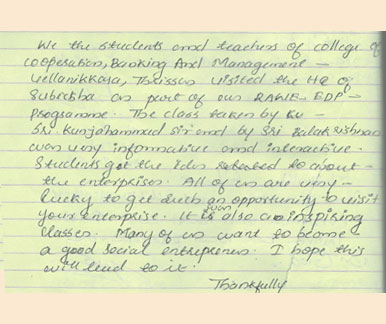 We the students and teachers of college of
cooperation, Banking And Management -
Vellanikkara, Thrissur visited the HQ of
Subiksha as part of our RAWE - EDP -
Programme. The class taken by Ku -
Sri. Kunjahammed sir and by Sri Balakrishnan
was very informative and interactive.
Students got the idea related to about -
the enterprises. All of us are very -
lucky to get such an opportunity to visit
your enterprise. It is also an inspiring
classes. Many of us want to become
a good social entrepreneur. I hope this
will lead to it.
Thankfully